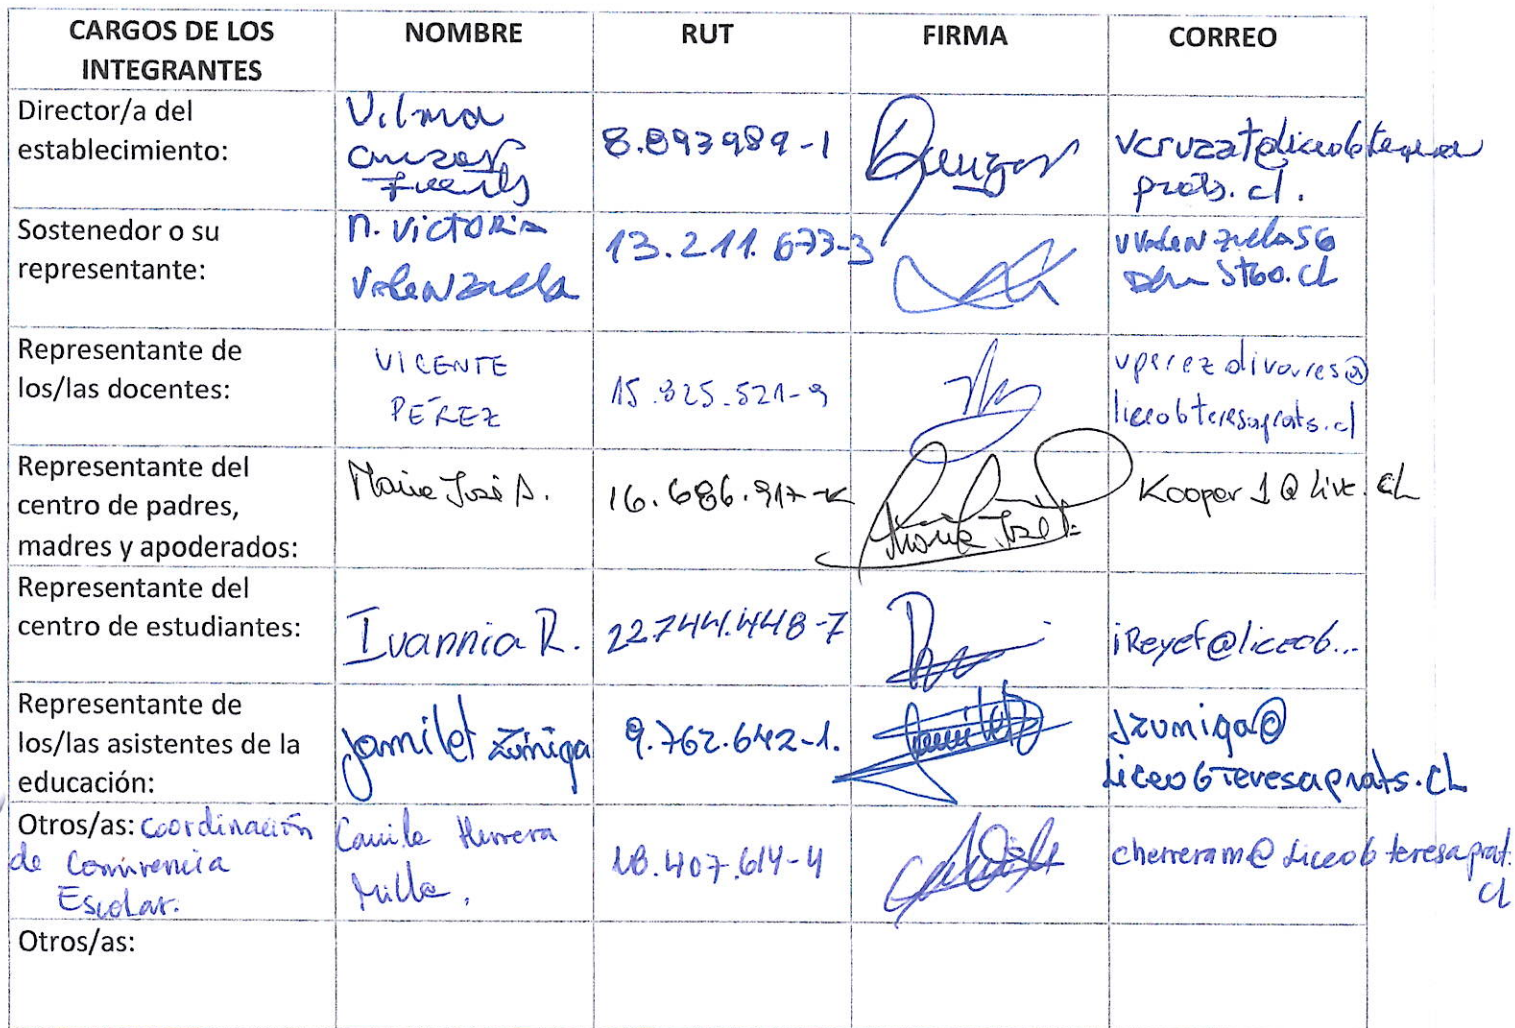 CARGOS DE LOS INTEGRANTES NOMBRE RUT FIRMA CORREO
Director/a del establecimiento:
Vilma
Fuentes
8.893989-1
vcruzat@liceo6teresa
prats.cl.
Sostenedor o su representante:
M. VICTORIA
Valenzuela
13.211.673-3
vvalenzuelaSG
Stgo.cl
Representante de los/las docentes:
VICENTE
PÉREZ
15.825.521-9
vperezolivares@
liceo6teresaprats.cl
Representante del centro de padres, madres y apoderados:
Maria José A.
16.686.917-K
Maria José
Kooper1@live.cl
Representante del centro de estudiantes:
Ivannia R.
22.744.448-7
iReyef@liceo6...
Representante de los/las asistentes de la educación:
Jamilet Zúñiga
9.762.642-1.
Jzuniga@
Liceo6Teresaprats.cl
Otros/as: Coordinación
de Convivencia
Escolar.
Camila Herrera
Milla.
18.407.614-4
cherreram@Liceo6teresaprat.
cl
Otros/as: